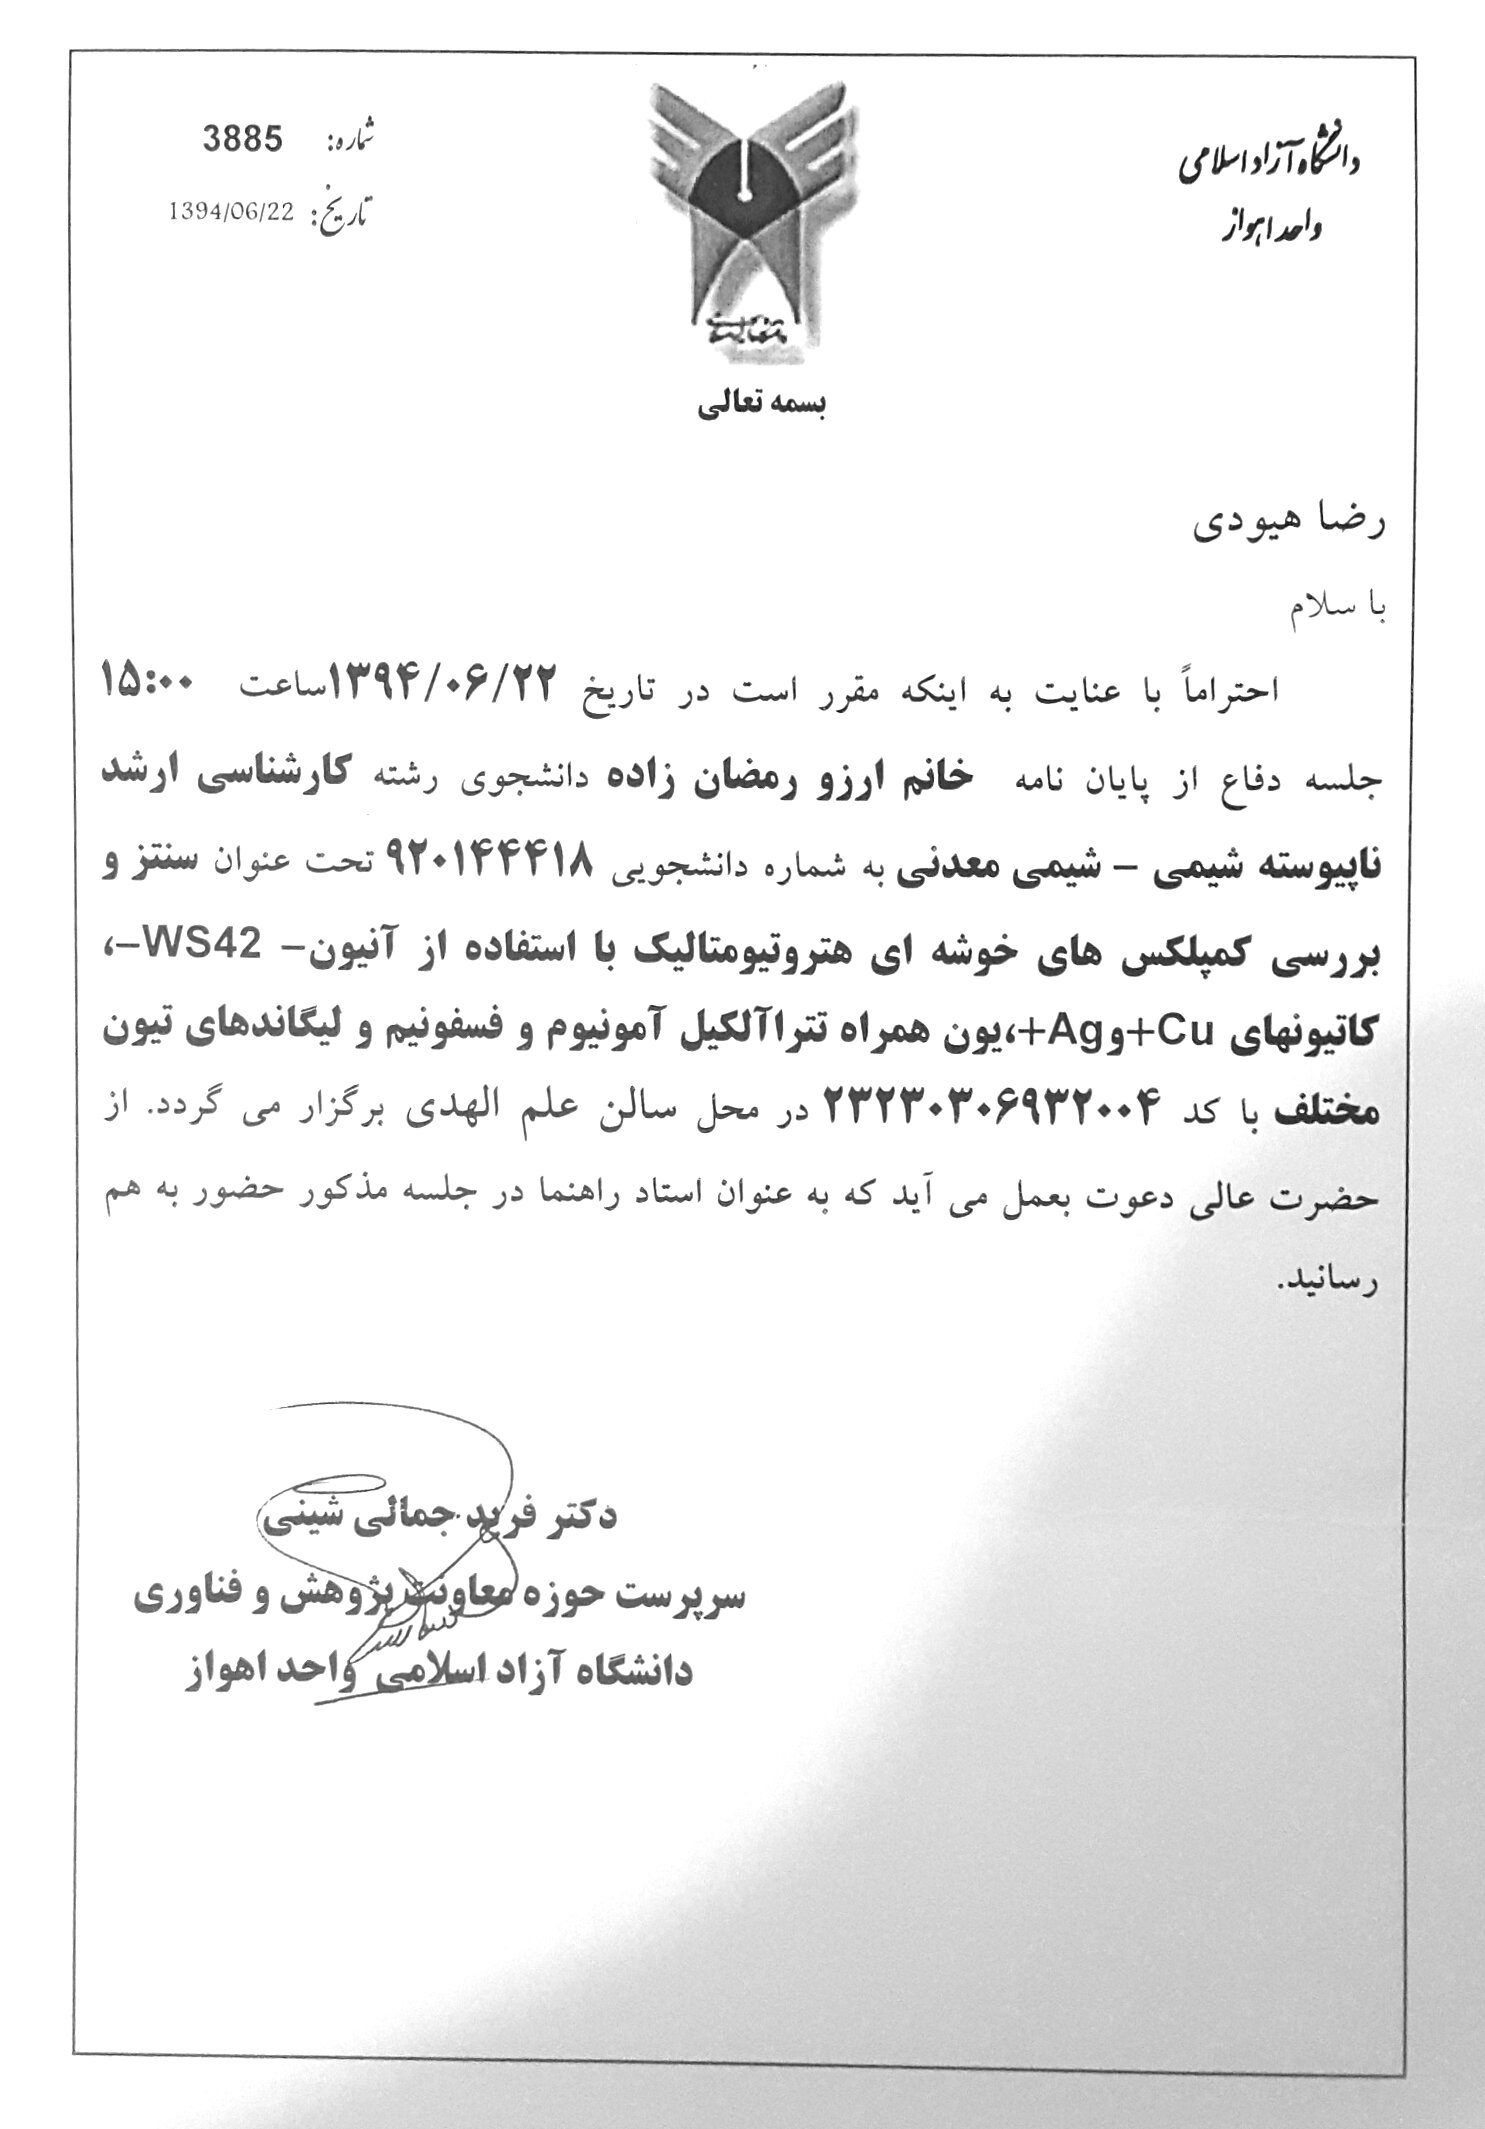 دانشگاه آزاد اسلامی
واحد اهواز
شماره: 3885
تاریخ: 1394/06/22
بسمه تعالی
رضا هیودی
با سلام
احتراماً با عنایت به اینکه مقرر است در تاریخ ۱۳۹۴/۰۶/۲۲ساعت ۱۵:۰۰
جلسه دفاع از پایان نامه خانم ارزو رمضان زاده دانشجوی رشته کارشناسی ارشد
ناپیوسته شیمی – شیمی معدنی به شماره دانشجویی ۹۲۰۱۴۴۴۱۸ تحت عنوان سنتز و
بررسی کمپلکس های خوشه ای هتروتیومتالیک با استفاده از آنیون– WS42–،
کاتیونهای Cu+وAg+،یون همراه تتراآلکیل آمونیوم و فسفونیم و لیگاندهای تیون
مختلف با کد ۲۳۲۳۰۳۰۶۹۳۲۰۰۴ در محل سالن علم الهدی برگزار می گردد. از
حضرت عالی دعوت بعمل می آید که به عنوان استاد راهنما در جلسه مذکور حضور به هم
رسانید.
دکتر فرید جمالی شینی
سرپرست حوزه معاونت پژوهش و فناوری
دانشگاه آزاد اسلامی واحد اهواز